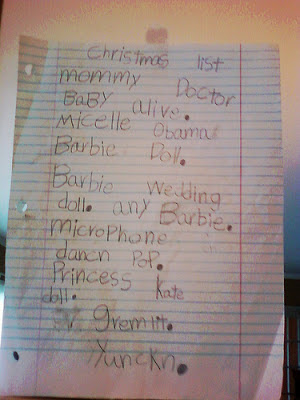 Christmas list
mommy Doctor
BaBY alive.
Micelle Obama
Barbie Doll.
Barbie Wedding
doll. any Barbie.
microPhone
dancn PoP.
Princess Kate
doll.
gremlit.